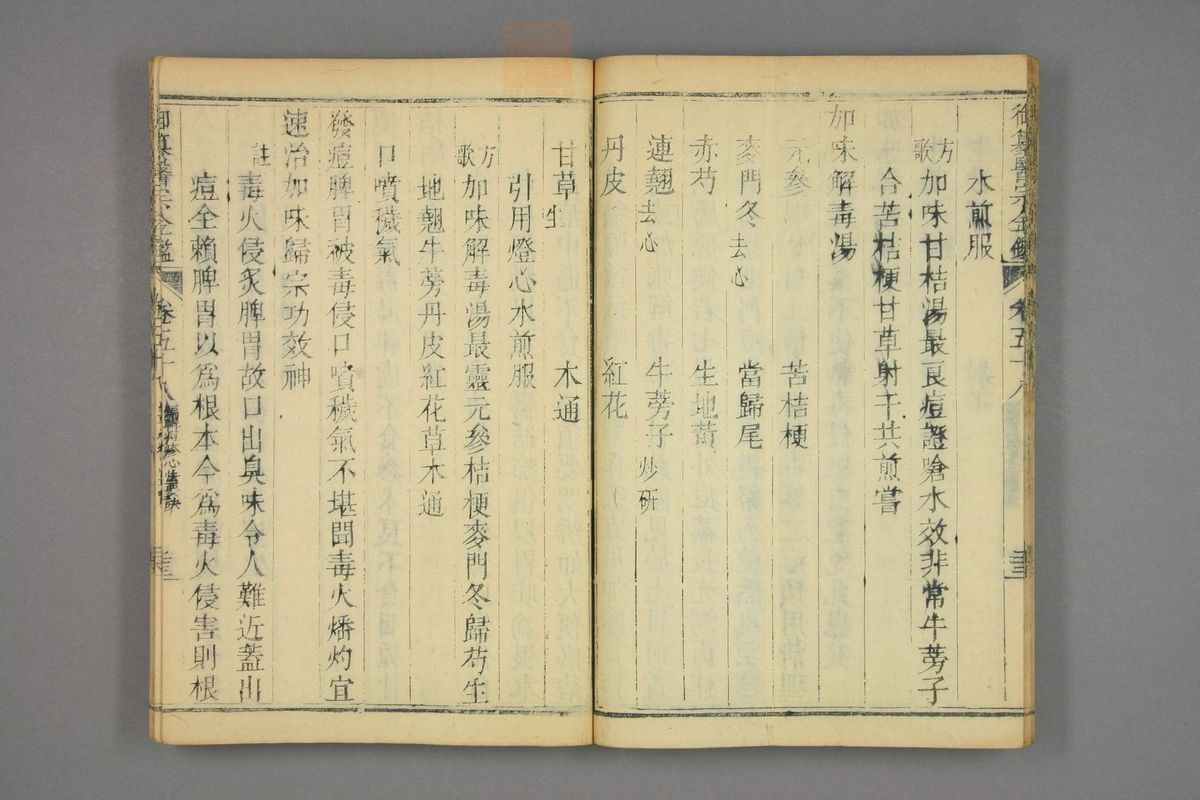 御纂醫宗金鑑 卷五十八
水煎服
方歌 加味甘桔湯最良痘證嗆水效非常牛蒡子
合苦桔梗甘草射干共煎嘗
加味解毒湯
元參 苦桔梗
麥門冬去心 當歸尾
赤芍 生地黃
連翹去心 牛蒡子炒研
丹皮 紅花
甘草生 木通
引用燈心水煎服
方歌 加味解毒湯最靈元參桔梗麥門冬歸芍生
地翹牛蒡丹皮紅花草木通
口噴穢氣
發痘脾胃被毒侵口噴穢氣不堪聞毒火燔灼宜
速冶加味歸宗功效神
註 毒火侵炙脾胃故口出臭味令人難近蓋出
痘全賴脾胃以爲根本今爲毒火侵害則根
御纂醫宗金鑑 卷五十八